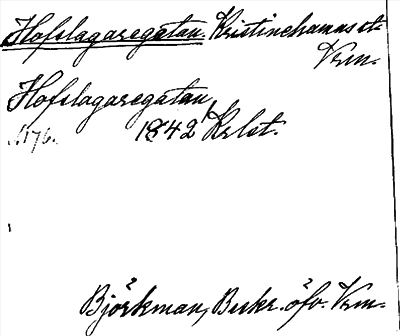 Hofslagaregatan. Kristinehamns st.
Vrm.
Hofslagaregatan,
1842 Krlst.
176.
Björkman, Beskr. öfv. Vrm.